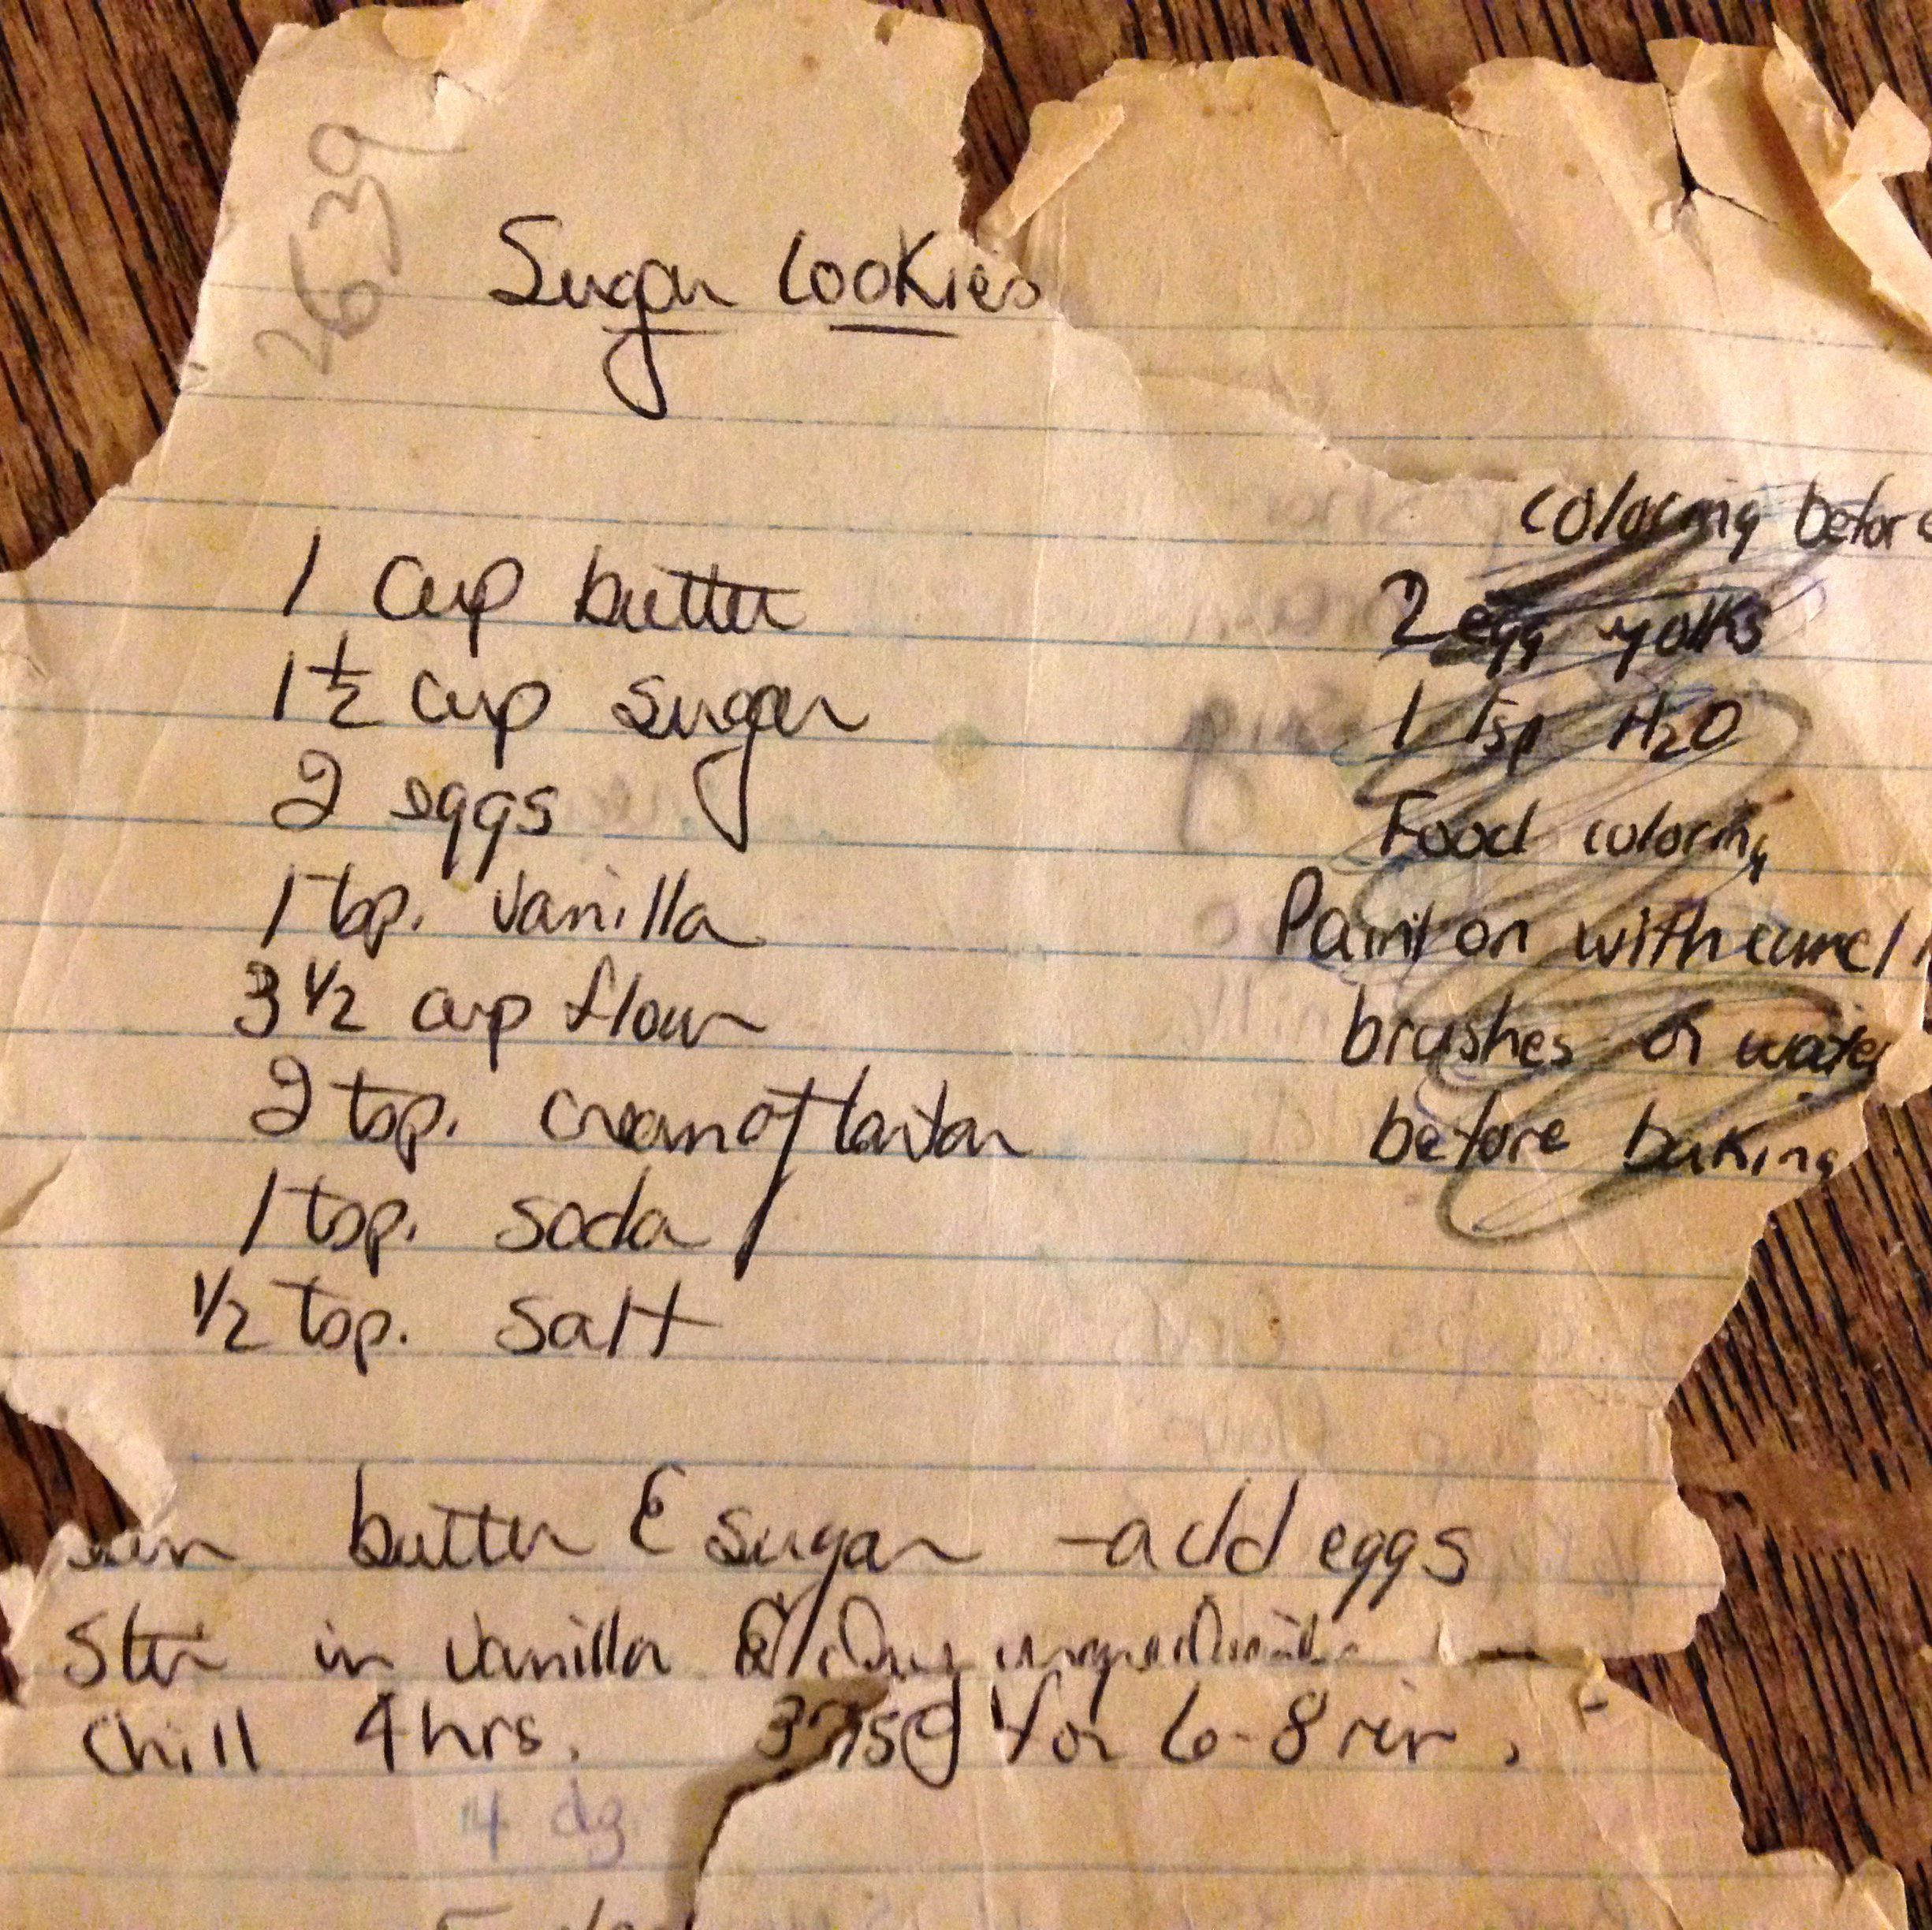 2639
Sugar Cookies
1 cup butter
1 1/2 cup sugar
2 eggs
1 tsp. vanilla
3 1/2 cup flour
2 tsp. cream of tartar
1 tsp. soda
1/2 tsp. salt
coloring before
2 egg yolks
1 Tsp H2O
Food coloring
Paint on with camel
brushes or water
before baking
butter & sugar - add eggs
Stir in vanilla & dry ingredients
Chill 4 hrs. 375° for 6-8 min.
4 dz